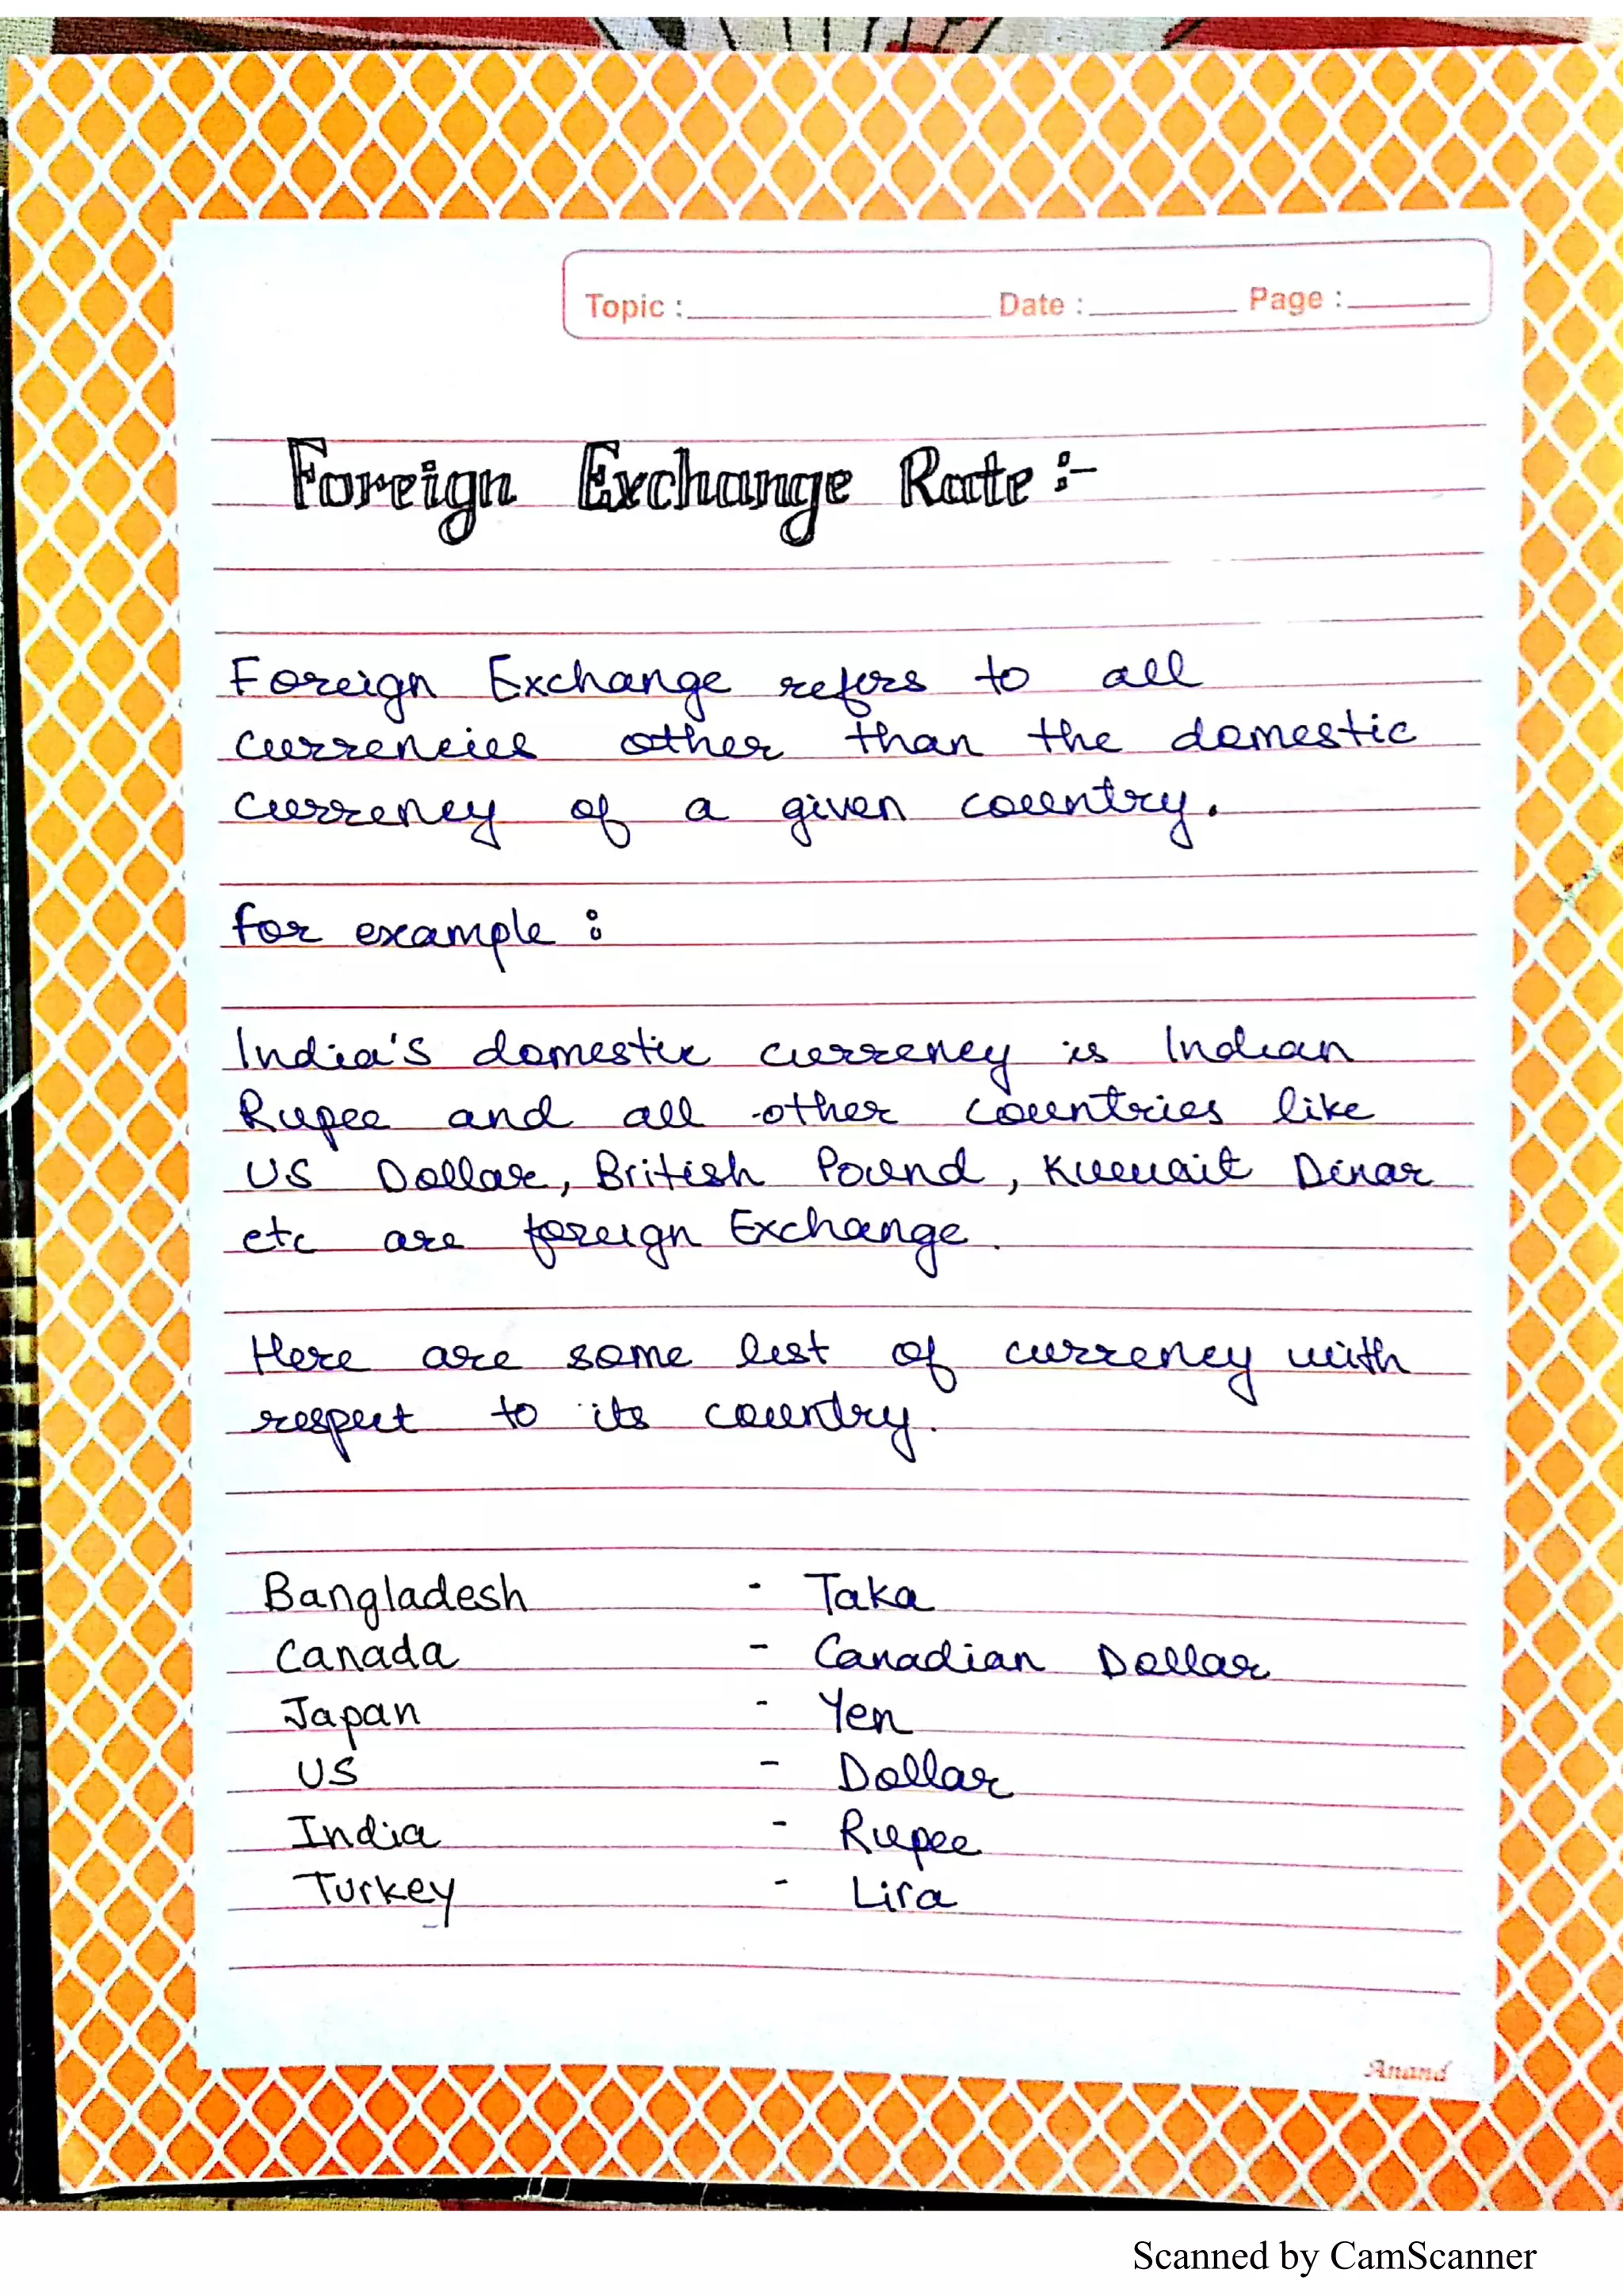 Topic : Date : Page :
Foreign Exchange Rate :-
Foreign Exchange refers to all
currencies other than the domestic
currency of a given country.
for example :
India's domestic currency is Indian
Rupee and all other countries like
US Dollar, British Pound, Kuwait Dinar
etc are foreign Exchange.
Here are some list of currency with
respect to its country.
Bangladesh - Taka
Canada - Canadian Dollar
Japan - Yen
US - Dollar
India - Rupee
Turkey - Lira
Anand
Scanned by CamScanner